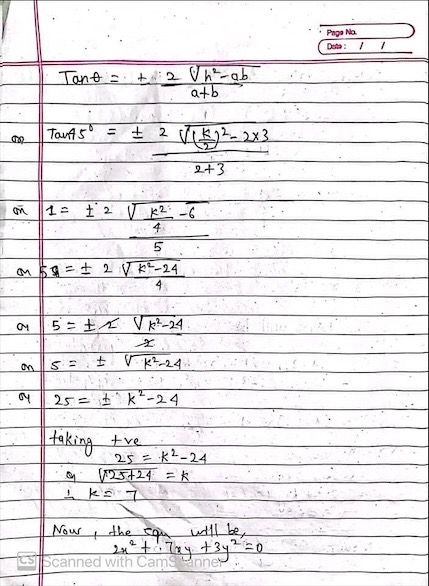 Page No.
Date: / /
Tanθ = ± 2 √h²-ab
a+b
or Tan45° = ± 2 √(k/2)²-2x3
2+3
or 1 = ± 2 √k²/4 -6
5
or 5 = ± 2 √k²-24
4
or 5 = ± 2 √k²-24
2
or 5 = ± √k²-24
or 25 = ± k²-24
taking +ve
25 = k²-24
or √25+24 = k
∴ k = 7
Now, the equ will be,
2x² + 7xy + 3y² = 0
CS Scanned with CamScanner